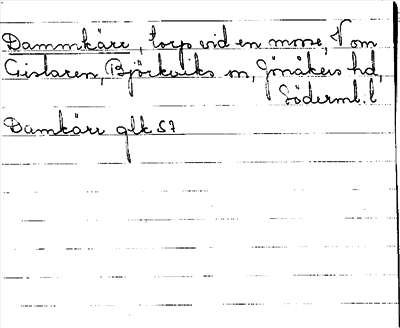 Dammkärr, torp vid en mosse, V om
Gislaren, Björkviks sn, Jönåkers hd,
Söderml. l
Damkärr glk 57